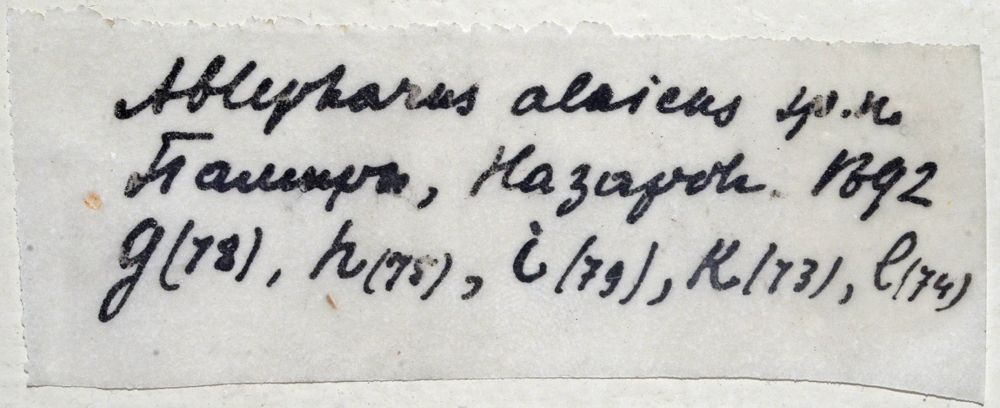 Ablepharus alaicus sp. n.
Памиръ, Назаров. 1892
g(78), h(75), i(79), K(73), l(74)